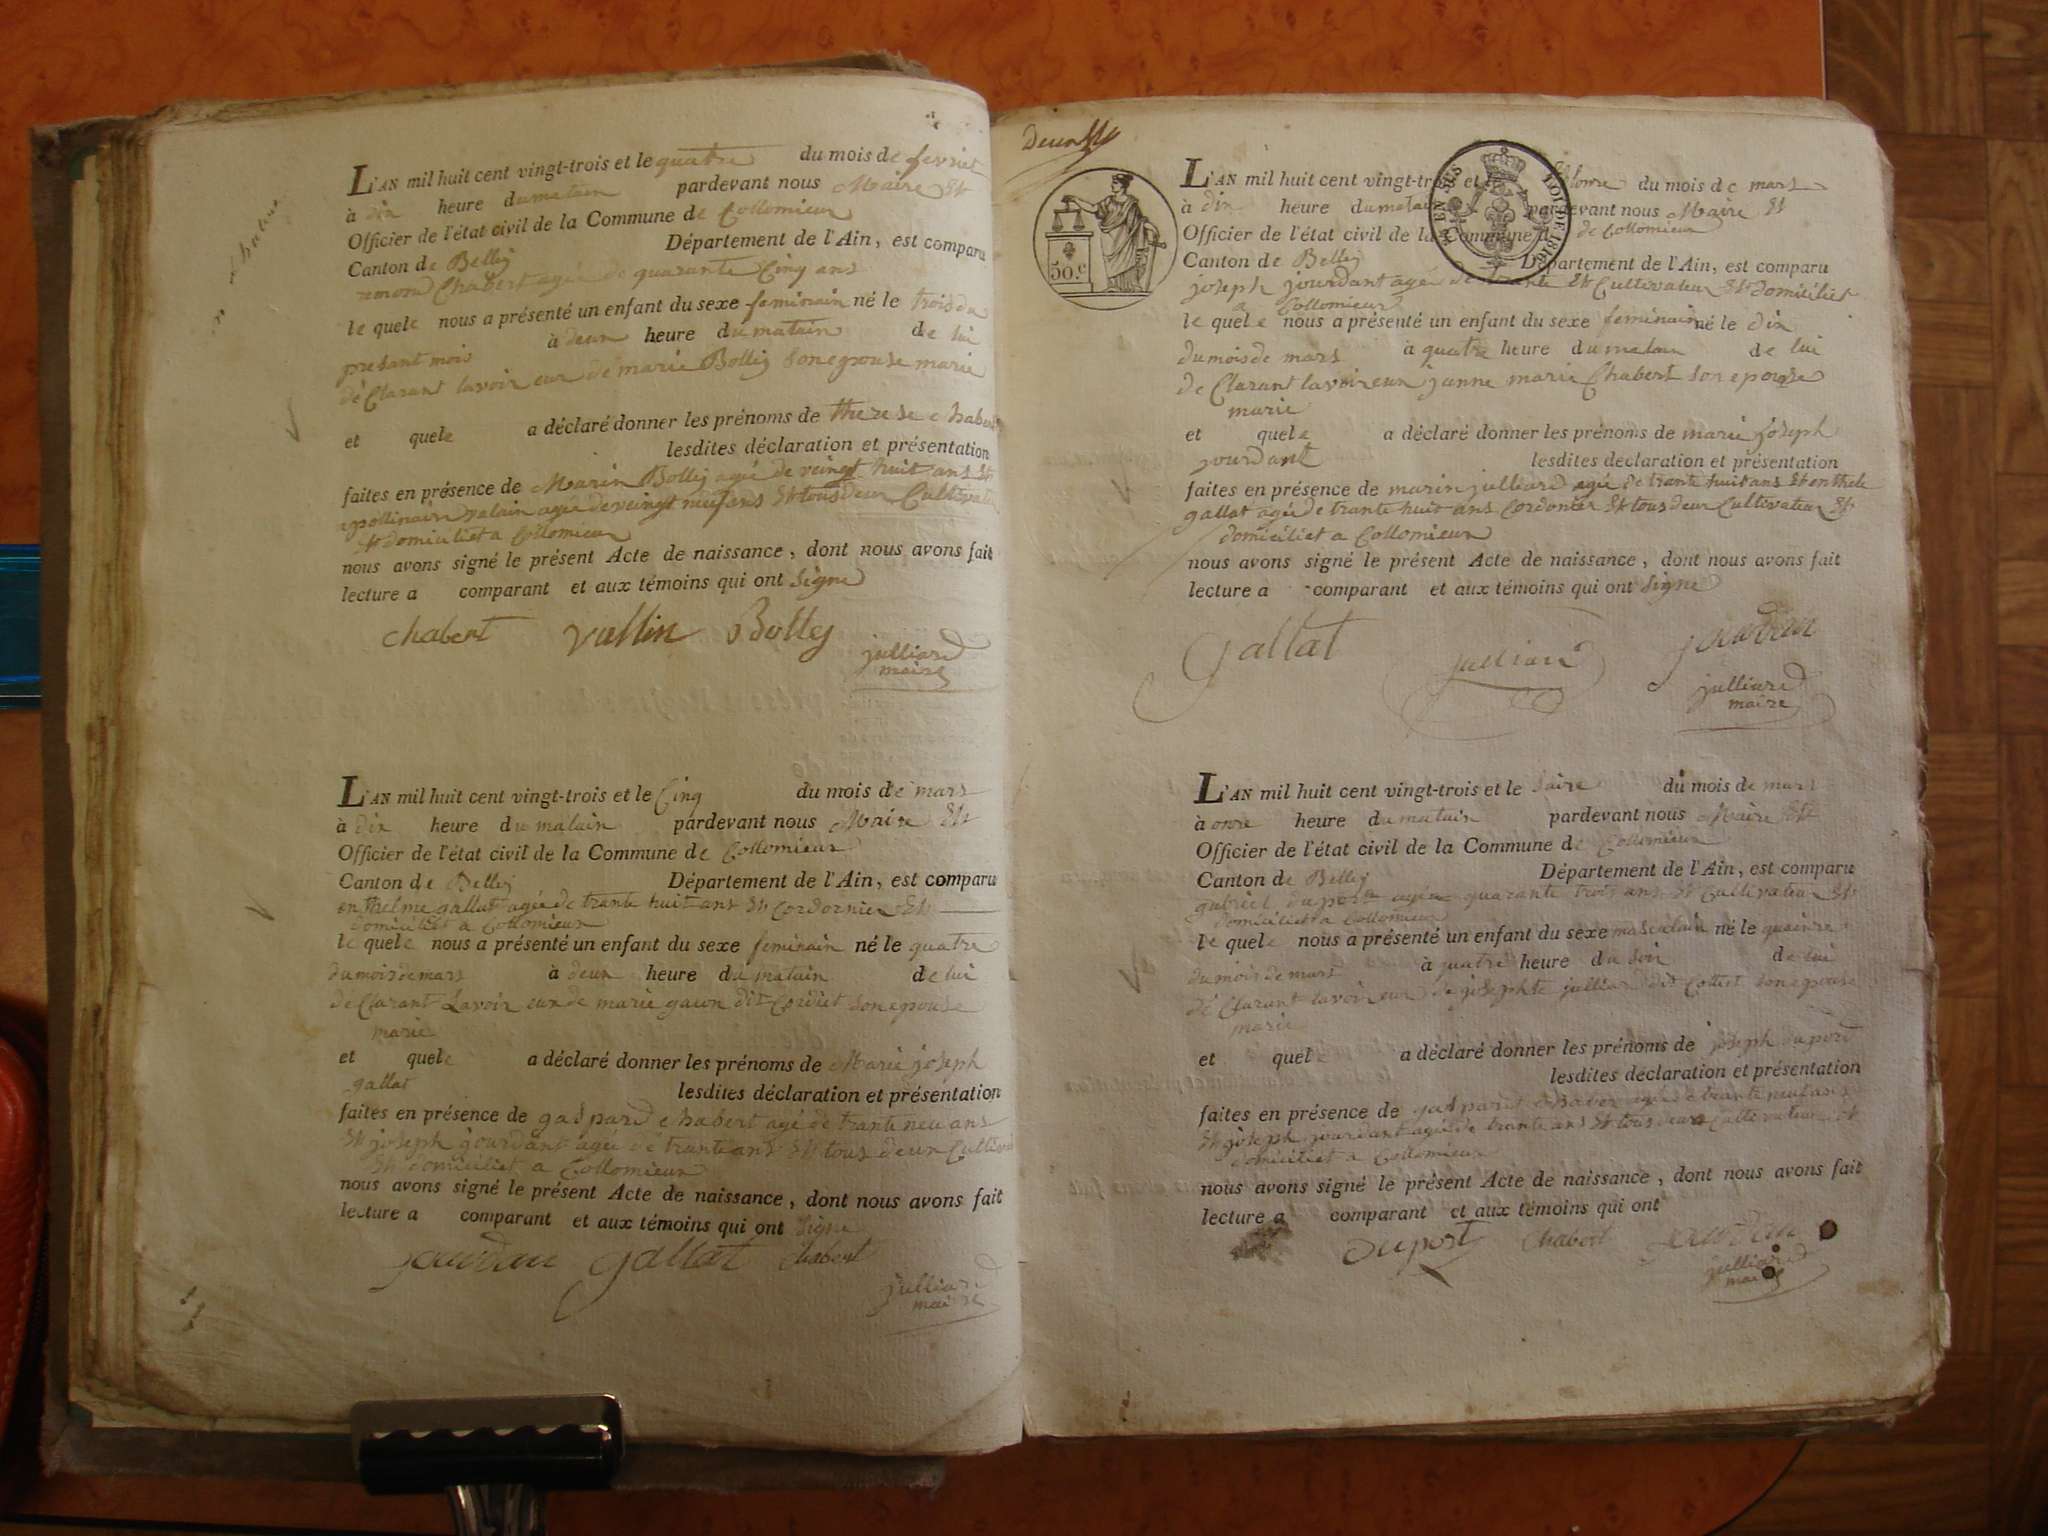 L'AN mil huit cent vingt-trois et le quatre du mois de fevrier
à dix heure du matain pardevant nous Maire Et
Officier de l'état civil de la Commune de Collomieux
Canton de Belley Département de l'Ain, est comparu
Chabert agée de quarante Cinq ans
le quele nous a présenté un enfant du sexe feminain né le trois du
presant mois à deux heure du matain de lui
dé Clarant lavoir eux de marie Bolley son epouse marie
et quele a déclaré donner les prénoms de therese chabert
lesdites déclaration et présentation
faites en présence de Marin Bolley agée de veingt huit ans Et
apollinaire valain agée de veingt neuf ans Et tous deux Cultivateur
Et domiciliet a Collomieux
nous avons signé le présent Acte de naissance, dont nous avons fait
lecture a comparant et aux témoins qui ont Signe
chabert vallin Bolley
julliard
maire
L'AN mil huit cent vingt-trois et le Cinq du mois de mars
à dix heure du matain pardevant nous Maire Et
Officier de l'état civil de la Commune de Collomieux
Canton de Belley Département de l'Ain, est comparu
enthelme gallat agée de trante huit ans Et Cordonnier Et
domiciliet a Collomieux
le quele nous a présenté un enfant du sexe feminain né le quatre
du mois de mars à deux heure du matain de lui
dé Clarant Lavoir eux de marie dit Cordiet son epouse
marie
et quele a déclaré donner les prénoms de Marie joseph
gallat lesdites déclaration et présentation
faites en présence de gaspard chabert agé de trante neu ans
Et joseph jourdant agée de trante ans Et tous deux Cultiva
Et domiciliet a Collomieux
nous avons signé le présent Acte de naissance, dont nous avons fait
lecture a comparant et aux témoins qui ont signe
jourdan gallat chabert
julliard
maire
50.c
LOI DE 1816
L'AN mil huit cent vingt-trois et le onre du mois de mars
à dix heure du matain pardevant nous Maire Et
Officier de l'état civil de la Commune de Collomieux
Canton de Belley Département de l'Ain, est comparu
joseph jourdant agée de trante Et Cultivateur Et domiciliet
a Collomieux
le quele nous a présenté un enfant du sexe feminain né le dix
du mois de mars à quatre heure du matain de lui
de Clarant lavoir eux janne marie Chabert son epouse
marie
et quele a déclaré donner les prénoms de marie joseph
jourdant lesdites déclaration et présentation
faites en présence de marin julliard agée de trante huit ans Et enthele
gallat agée de trante huit ans Cordonier Et tous deux Cultivateur Et
domiciliet a Collomieux
nous avons signé le présent Acte de naissance, dont nous avons fait
lecture a comparant et aux témoins qui ont signe
Gallat julliard jourdan
julliard
maire
L'AN mil huit cent vingt-trois et le saire du mois de mars
à onre heure du matain pardevant nous Maire Et
Officier de l'état civil de la Commune de Collomieux
Canton de Belley Département de l'Ain, est comparu
gabriel duport agée quarante trois ans Et Cultivateur Et
domiciliet a Collomieux
le quele nous a présenté un enfant du sexe masculain né le quainre
du mois de mars à quatre heure du soir de lui
dé Clarant lavoir eux de josephte julliar dit Collet son epouse
marie
et quele a déclaré donner les prénoms de joseph duport
lesdites déclaration et présentation
faites en présence de gaspard chabert agée de trante neuf ans
Et joseph jourdant agée de trante ans Et tous deux Cultivateur Et
domiciliet a Collomieux
nous avons signé le présent Acte de naissance, dont nous avons fait
lecture a comparant et aux témoins qui ont
duport chabert jourdan
julliard
maire